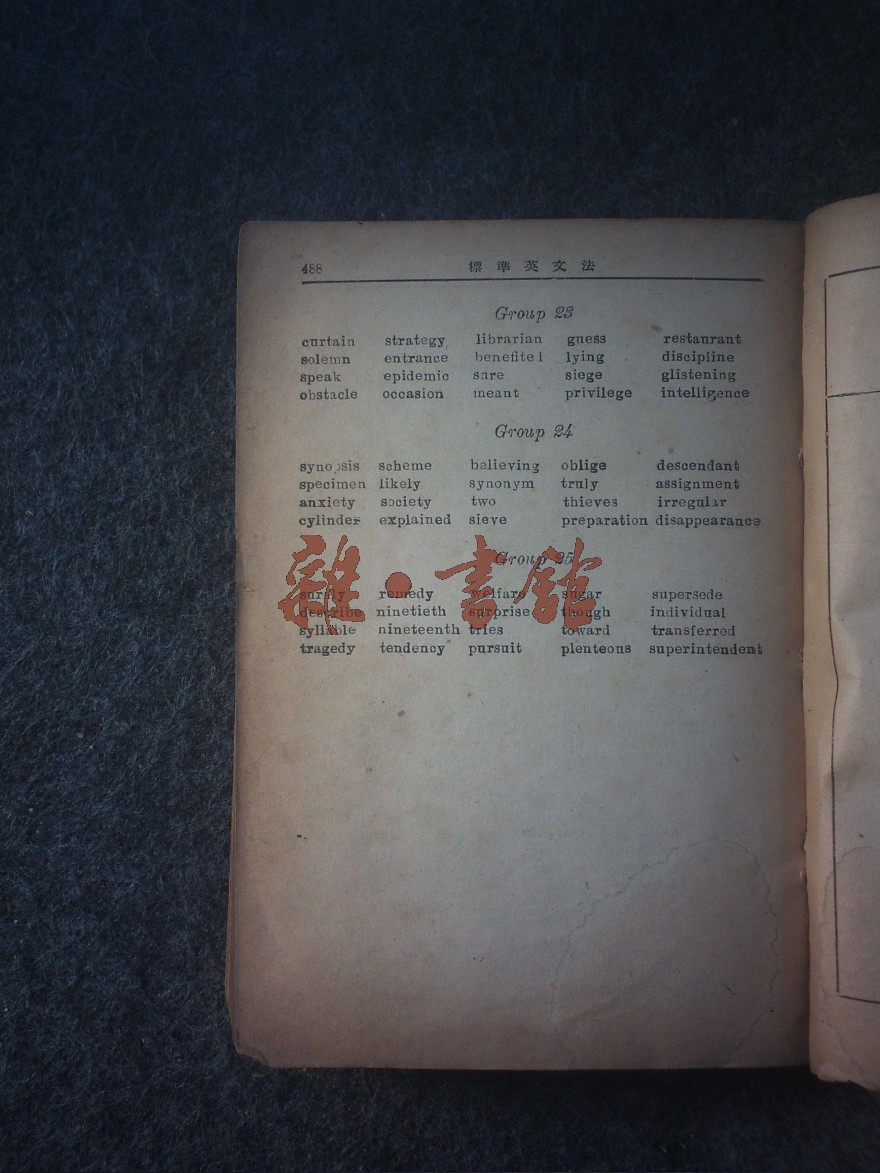 488 標準英文法
Group 23
curtain strategy librarian guess restaurant
solemn entrance benefited lying discipline
speak epidemic sure siege glistening
obstacle occasion meant privilege intelligence
Group 24
synopsis scheme believing oblige descendant
specimen likely synonym truly assignment
anxiety society two thieves irregular
cylinder explained sieve preparation disappearance
Group 25
surely remedy welfare sugar supersede
describe ninetieth surprise though individual
syllable nineteenth tries toward transferred
tragedy tendency pursuit plenteous superintendent
雜·書館